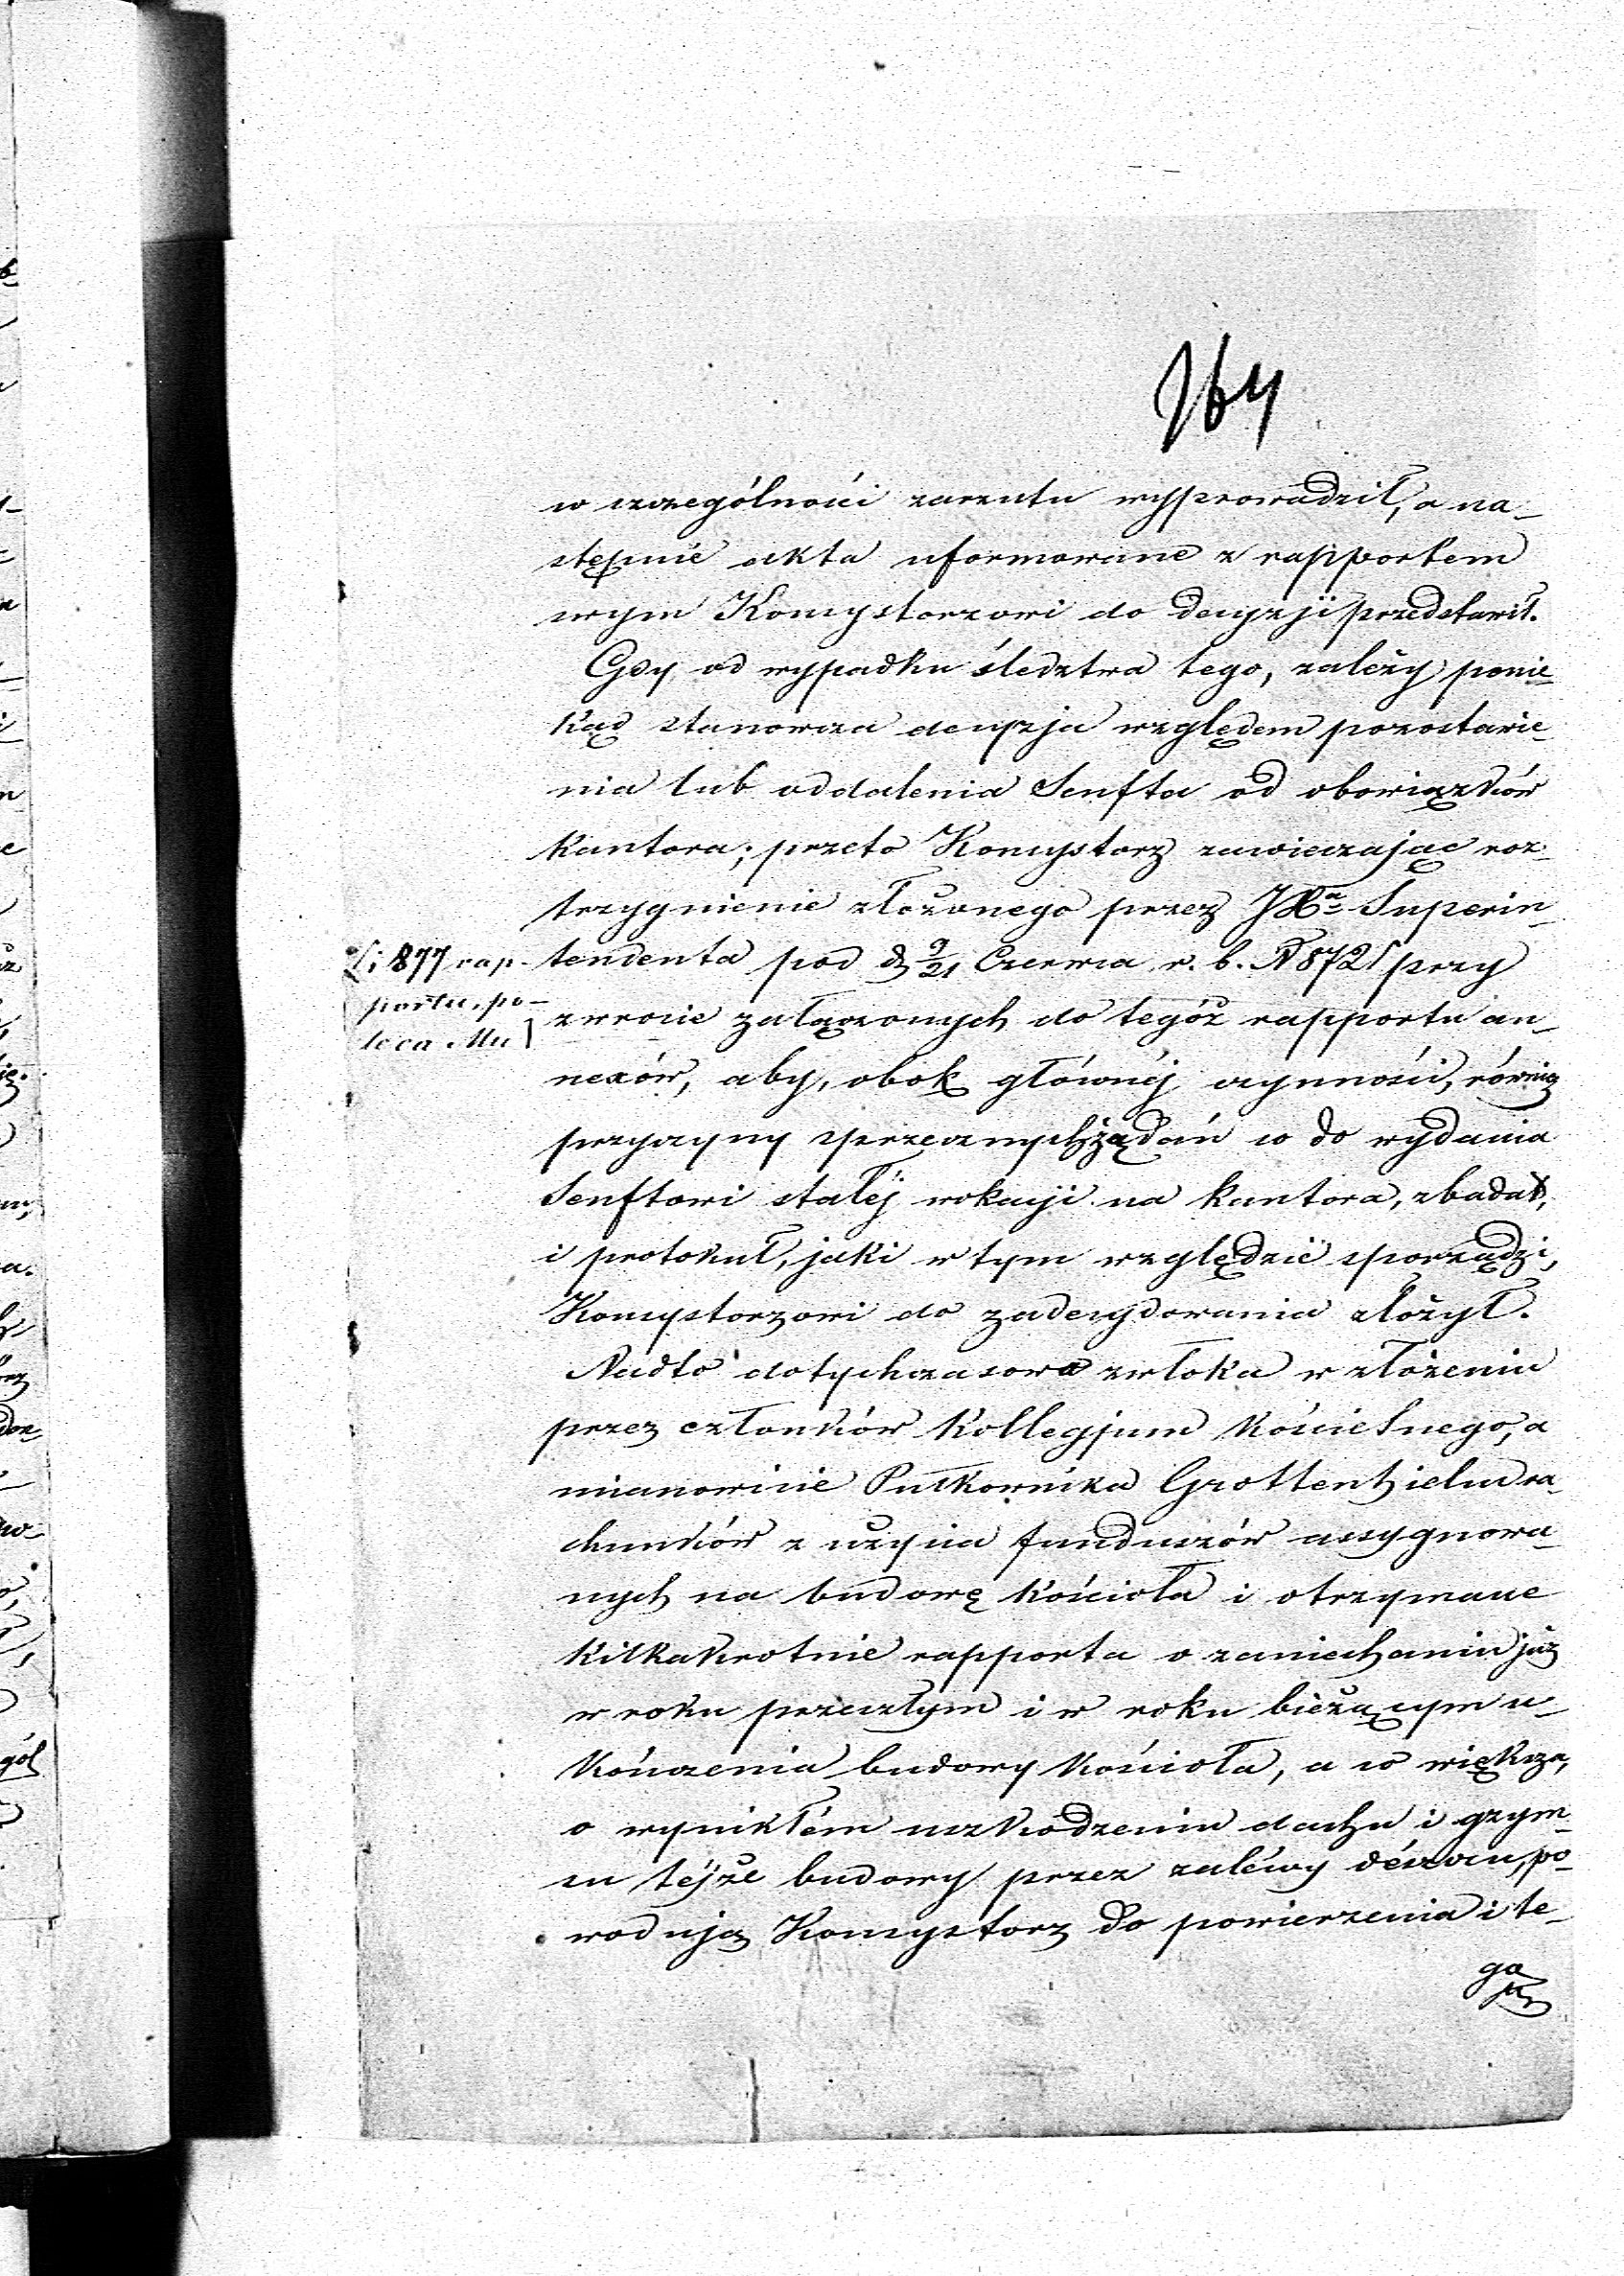 264
w szczególności zarzutu wyprowadził, a na-
stępnie akta uformowane z rapportem
swym Konsystorzowi do decyzji przedstawił.
Gdy od wypadku śledztwa tego, zależy ponie-
kąd stanowcza decyzja względem pozostawie-
nia lub oddalenia Senfta od obowiązków
kantora; przeto Konsystorz zawieszając roz-
trzygnienie złożonego przez JXa Superin-
tendenta pod d 9/21 Czerwca r. b. N 872 przy
i 877 rap-
portu, po-
leca Mu
zwrocie załączonych do tegóż rapportu an-
nexów, aby, obok głównéj czynności, równiez
przyczyny sprzecznych żądań co do wydania
Senftowi stałéj wokacji na kantora, zbadał,
i protokuł, jaki w tym względzie sporządzi,
Konsystorzowi do zadecydowania złożył.
Nadto dotychczasowa zwłoka w złożeniu
przez członków Kollegjum Kościelnego, a
mianowicie Pułkownika Grottenhielm ra-
chunków z użycia funduszów assygnowa-
nych na budowę Kościoła i otrzymane
kilkakrotnie rapporta o zaniechaniu już
w roku przeszłym i w roku bieżącym u-
kończenia budowy Kościoła, a co większa,
o wynikłém uszkodzeniu dachu i gzym-
su téjże budowy przez zaléwy dészczu, po-
wodują Konsystorz do powierzenia i te-
go